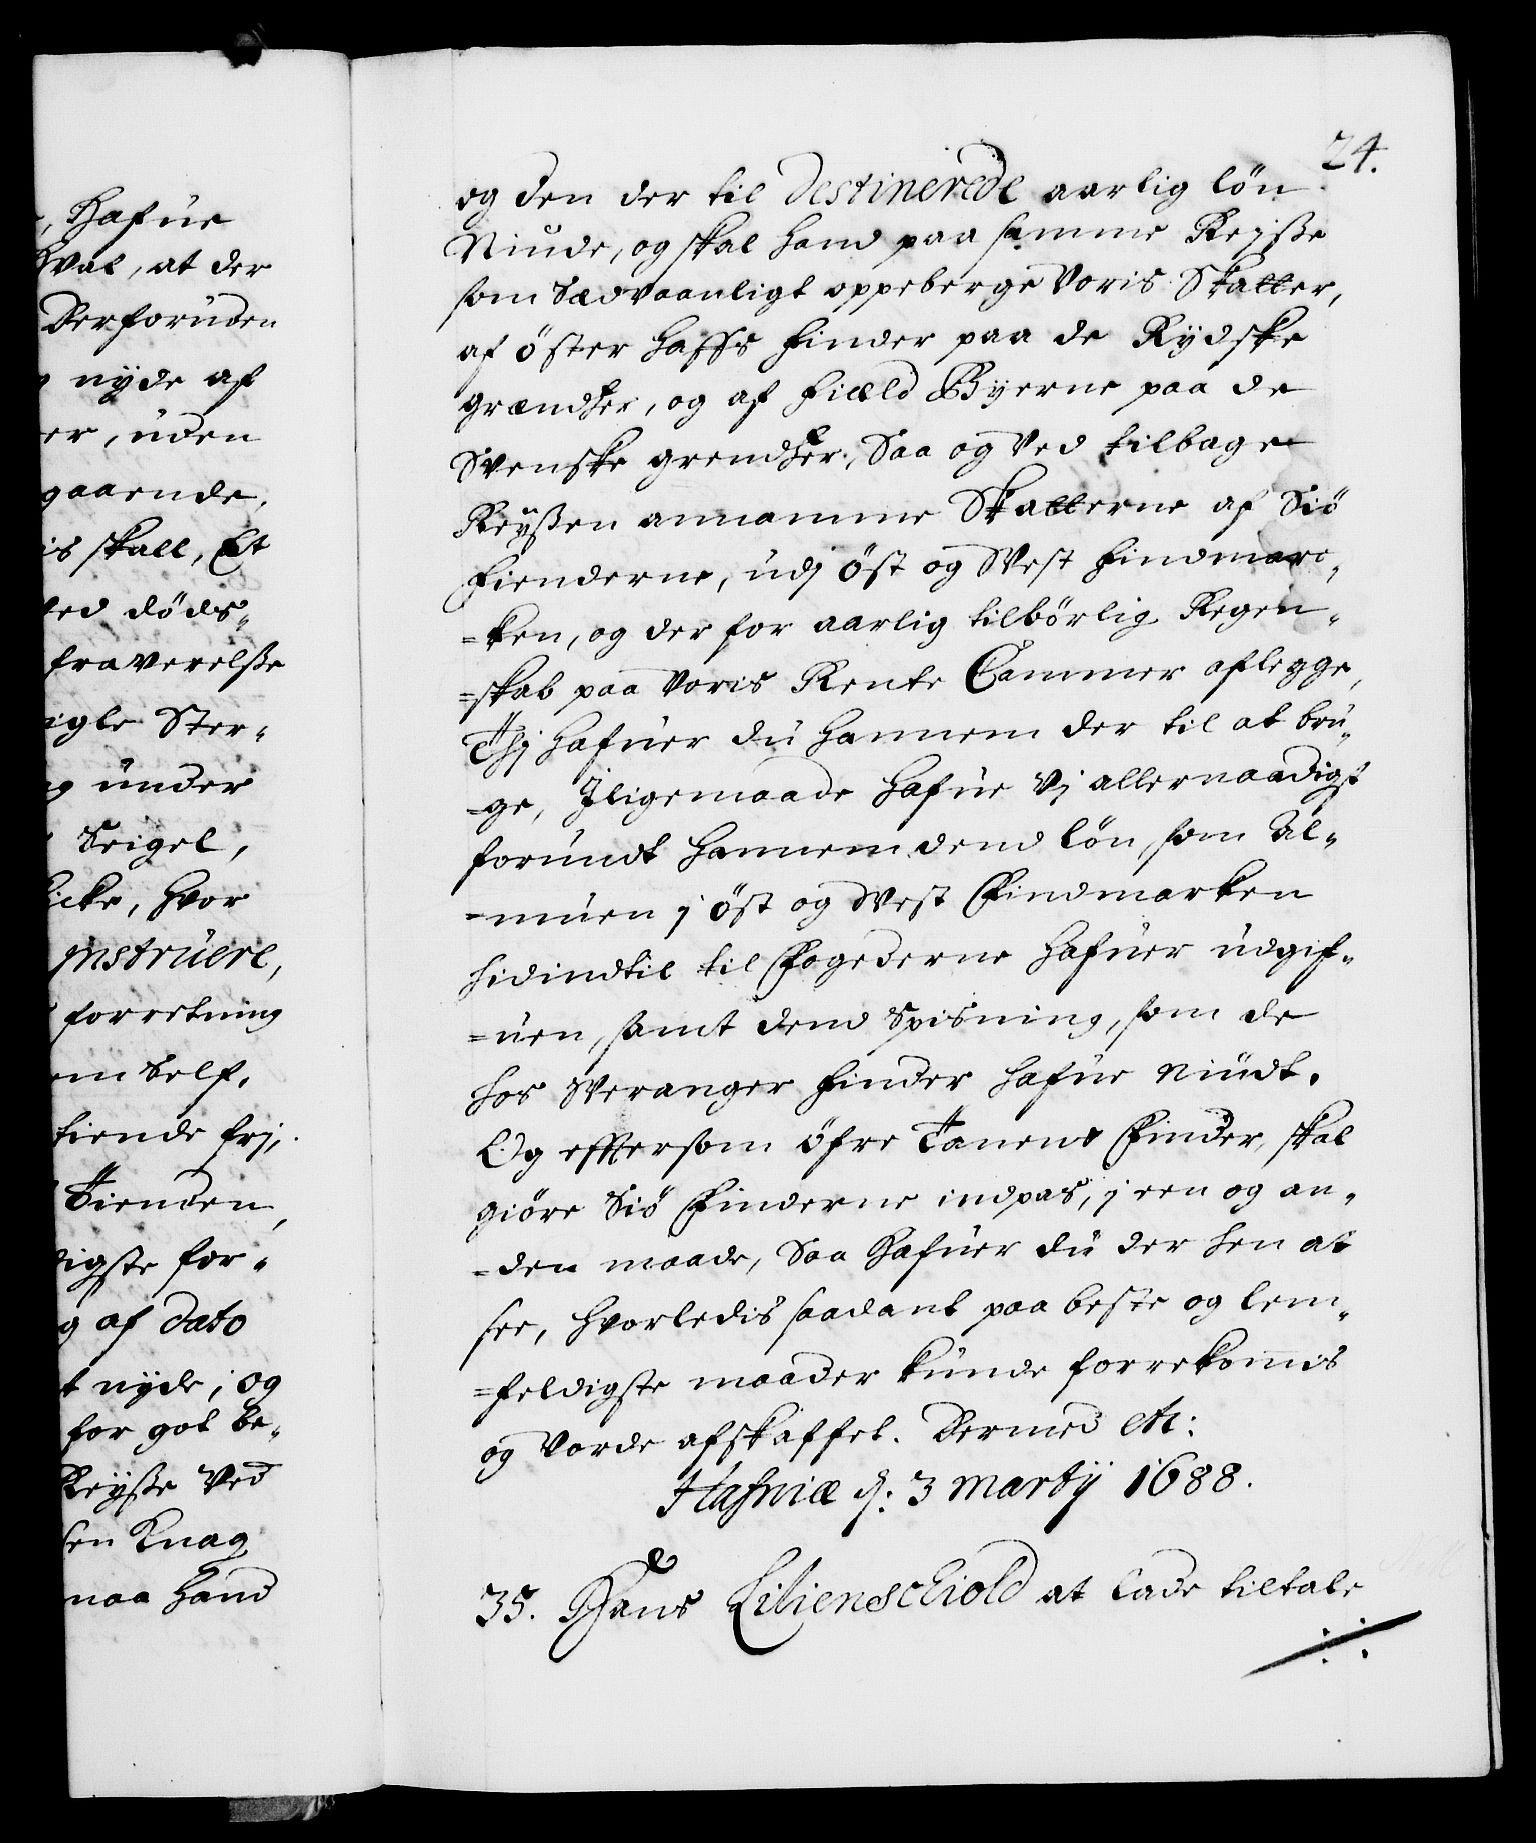 , Hafue
val, at der
Derforuden
nyde af
er, uden
gaaende,
is skall, Et
ved döds-
fraverelsse
igle Ster-
g under
Seigel,
icke, hvor
Instruere,
forretning
em Self,
tiende frj,
Tienden,
digste for-
g af Dato
t nyde, og
for got be-
Reysse Ved
sen Knag
naa Hand
24.
og den der til Destinerede aarlig lön
Niude, og skal hand paa samme Rejsse
som Sædvaanligt oppeberge Voris Skatter,
af öster haffs finder paa de Rydske
grændtzer, og af Fiæld Byerne paa de
Svenske grendtzer, Saa og Ved tilbage
Reyssen annamme Skatterne af Siö
Fienderne, udj öst og West Findmar-
=ken, og der for aarlig tilbörlig Regen-
=skab paa Voris Rente Cammer aflegge,
Thj Hafuer du hannem der til at bru-
=ge, Jligemaade Hafue Vj allernaadigst
forundt hannem dend lön, som Al-
=muen j öst og West Findmarken
hidindtil til Fogederne Hafuer udgif-
=uen, samt dend Spisning, som de
hos Weranger Finder hafue Niudt.
Og eftersom öfre Tanens Finder, skal
giöre Siö Finderne indpas, j een og an-
=den maade, Saa Hafuer du der hen at
see, Hvorledis saadant paa beste og lem-
=feldigste maader kunde forrekommis
og Vorde afskaffet. Dermed etc:
Hafniæ d: 3 Martij 1688.
35. Hans Lilienschiold at lade tiltale